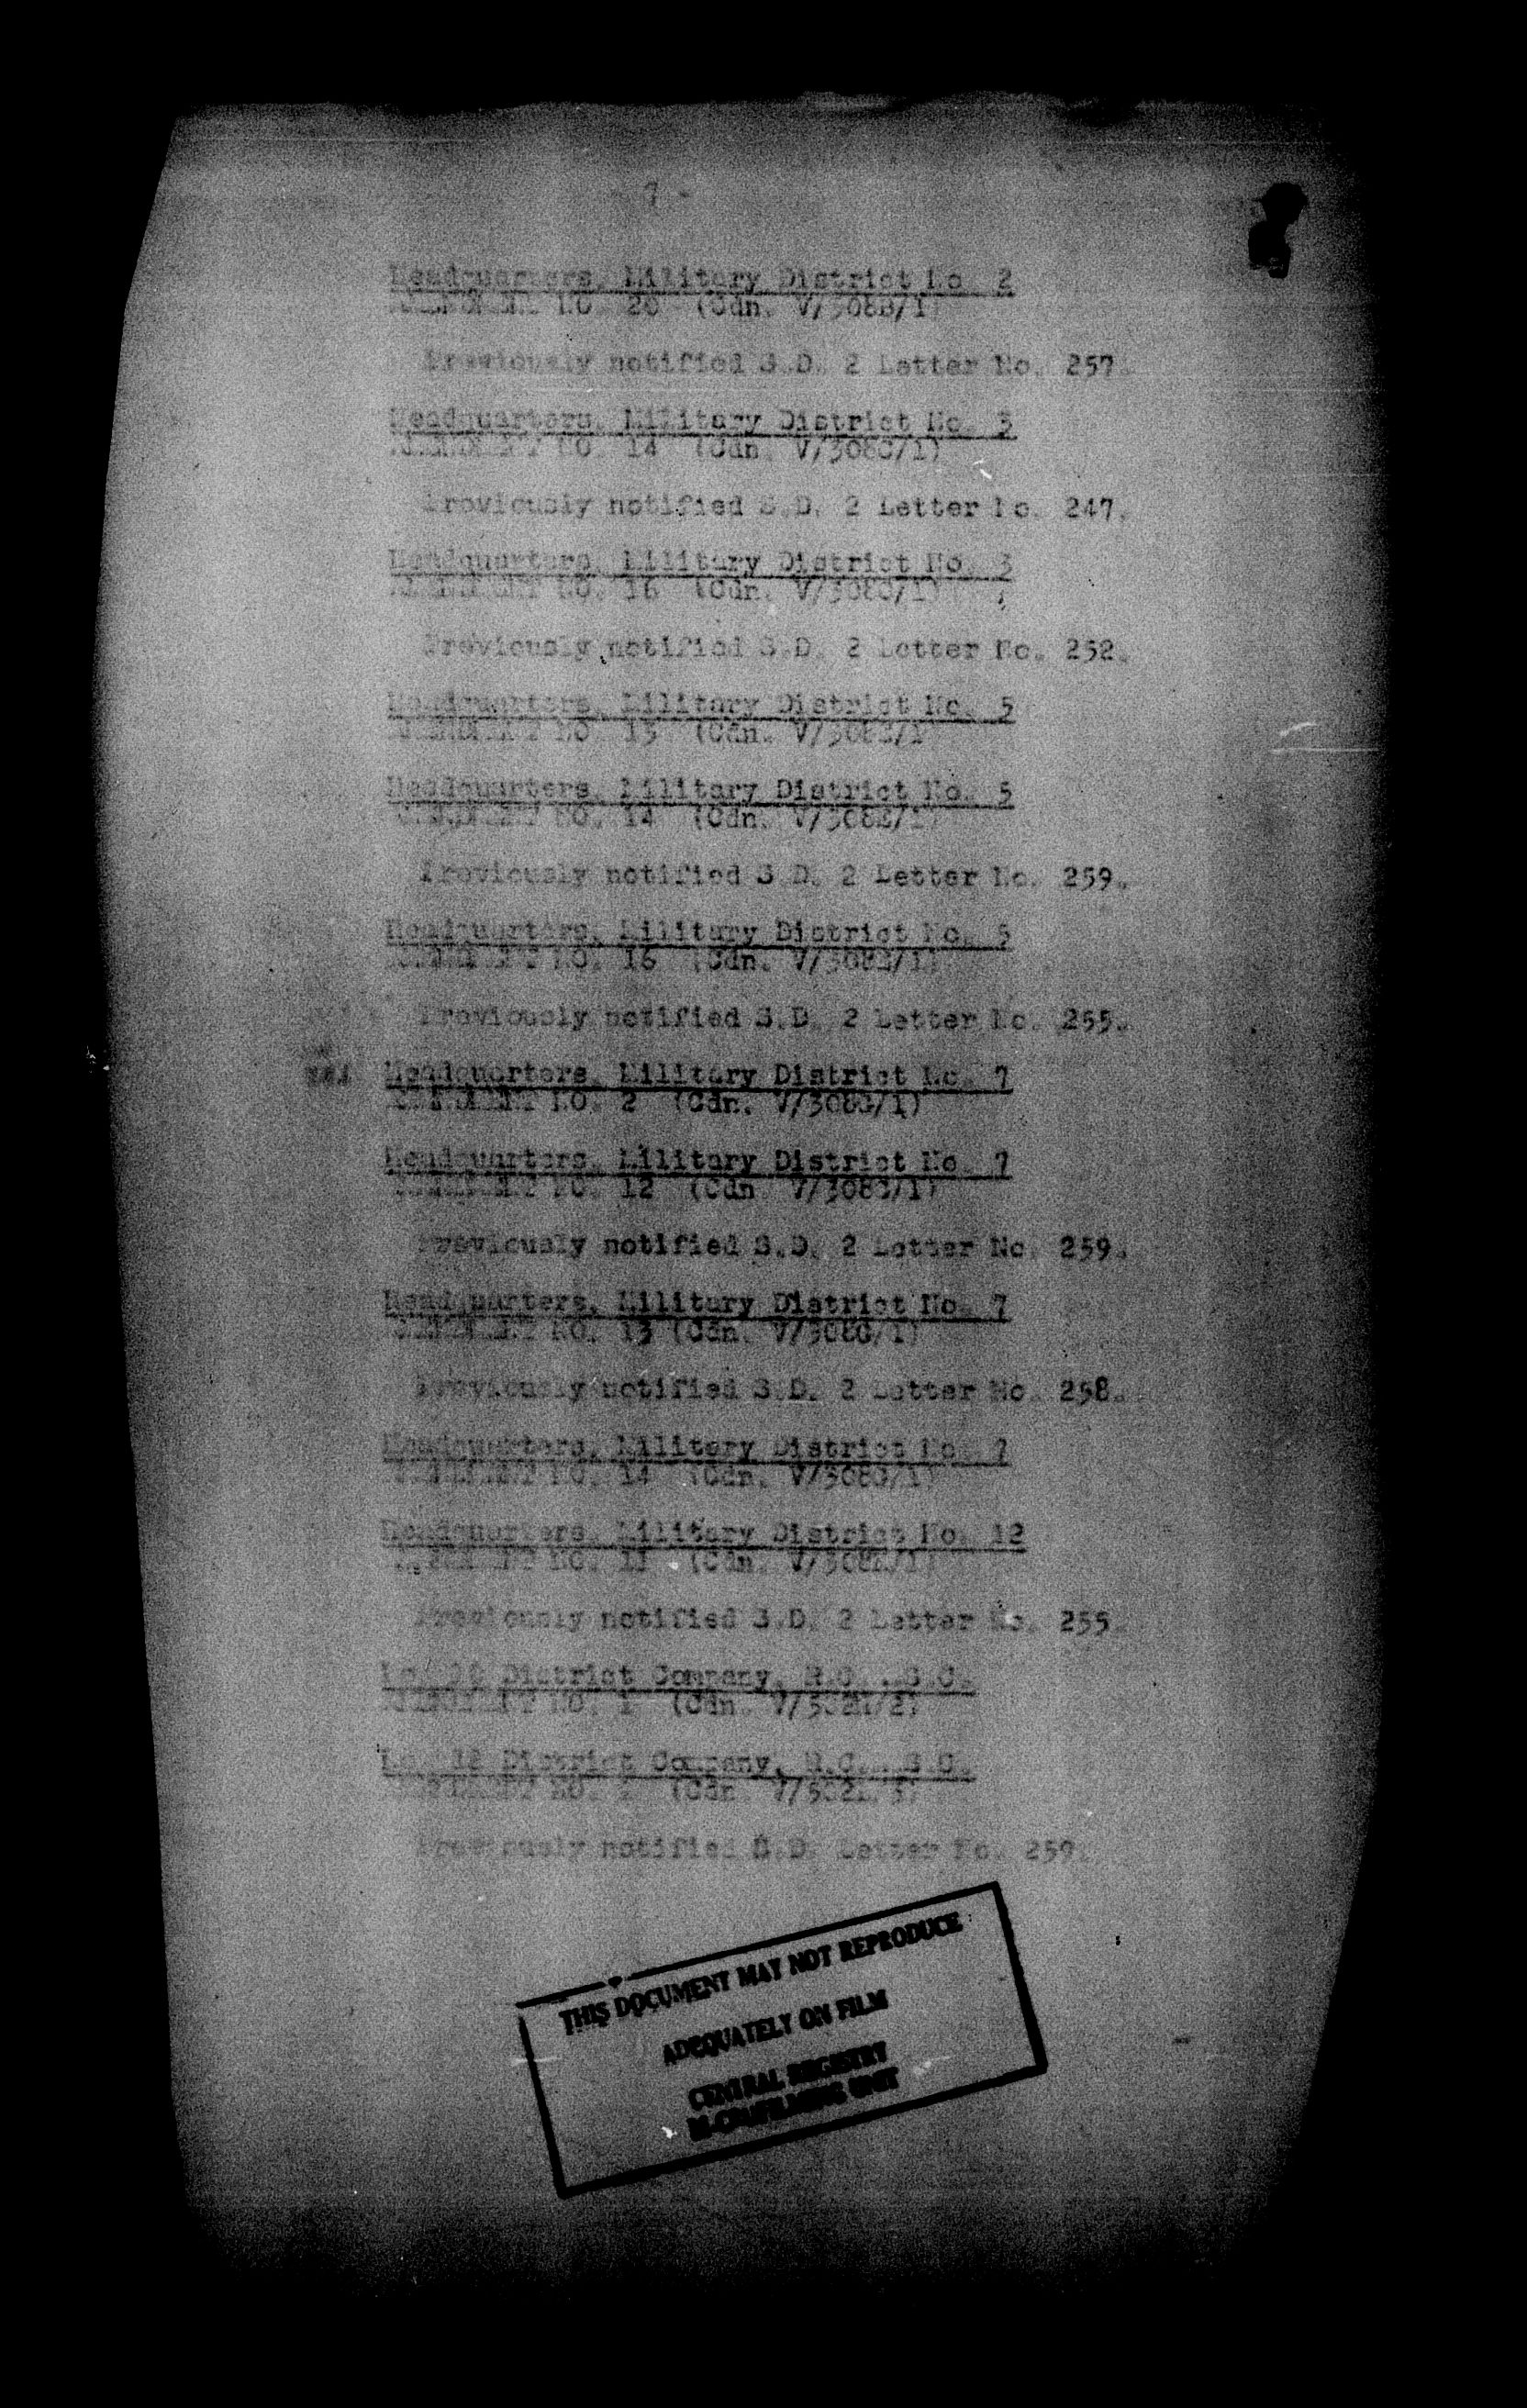 7 -
Headquarters, Military District No. 2
AMENDMENT NO. 20 (Cdn. V/308B/1)
Previously notified S.D. 2 Letter No. 257.
Headquarters, Military District No. 3
AMENDMENT NO. 14 (Cdn. V/308C/1)
Previously notified S.D. 2 Letter No. 247.
Headquarters, Military District No. 3
AMENDMENT NO. 16 (Cdn. V/308C/1)
Previously notified S.D. 2 Letter No. 252.
Headquarters, Military District No. 5
AMENDMENT NO. 13 (Cdn. V/308E/1
Headquarters, Military District No. 5
AMENDMENT NO. 14 (Cdn. V/308E/1)
Previously notified S.D. 2 Letter No. 259.
Headquarters, Military District No. 5
AMENDMENT NO. 16 (Cdn. V/308E/1)
Previously notified S.D. 2 Letter No. 255.
Headquarters, Military District No. 7
AMENDMENT NO. 2 (Cdn. V/308G/1)
Headquarters, Military District No. 7
AMENDMENT NO. 12 (Cdn V/308G/1)
Previously notified S.D. 2 Letter No. 259.
Headquarters, Military District No. 7
AMENDMENT NO. 13 (Cdn. V/308G/1)
Previously notified S.D. 2 Letter No. 258.
Headquarters, Military District No. 7
AMENDMENT NO. 14 (Cdn. V/308G/1)
Headquarters, Military District No. 12
AMENDMENT NO. 11 (Cdn.
Previously notified S.D. 2 Letter No. 255
District Company, R.C.A.S.C.
AMENDMENT NO. 1 (Cdn.
No. 12 District Company, R.C.A.S.C.
AMENDMENT NO. (Cdn.
Previously notified S.D. Letter No. 259.
THIS DOCUMENT MAY NOT REPRODUCE
ADEQUATELY ON FILM
CENTRAL REGISTRY
MICROFILMING UNIT